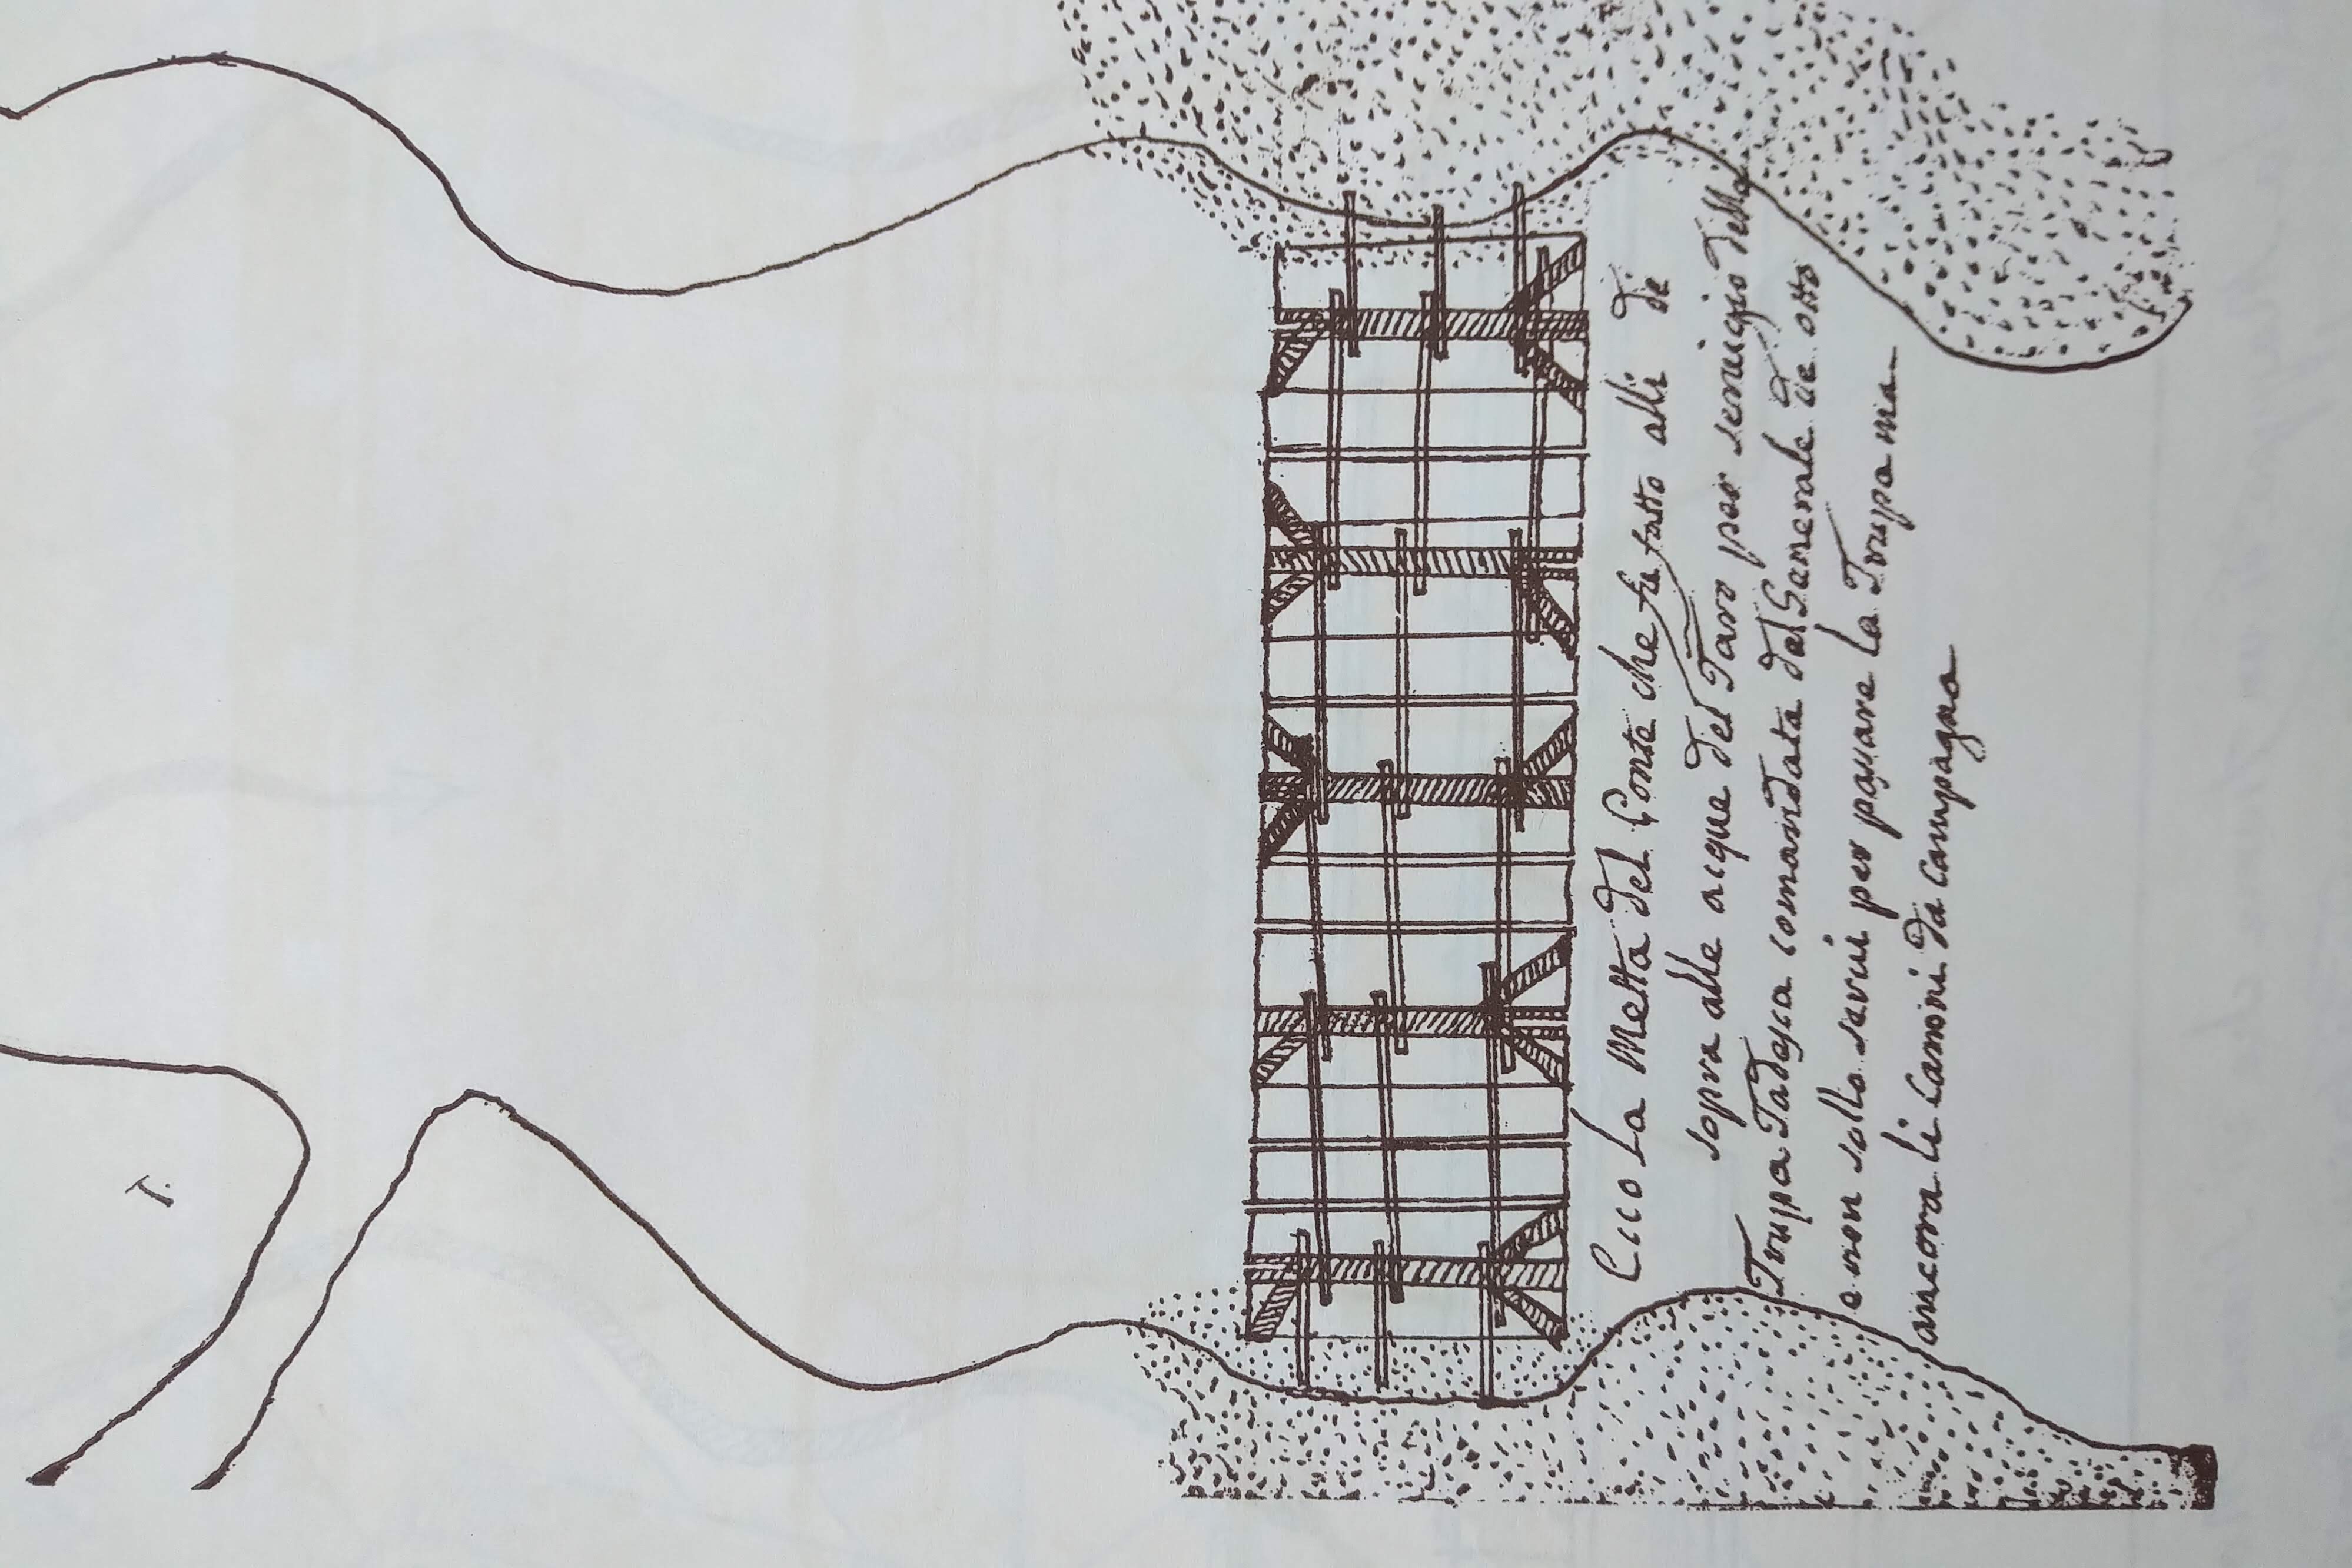 Ecco La Metta del Ponte che fu fatto alli di
sopra alle acque del Taro per seruigio della
Truppa Tadesca comandata dal Generale de otto
e non sollo serui per passare la Truppa ma
ancora li Canoni da Campagna
T.